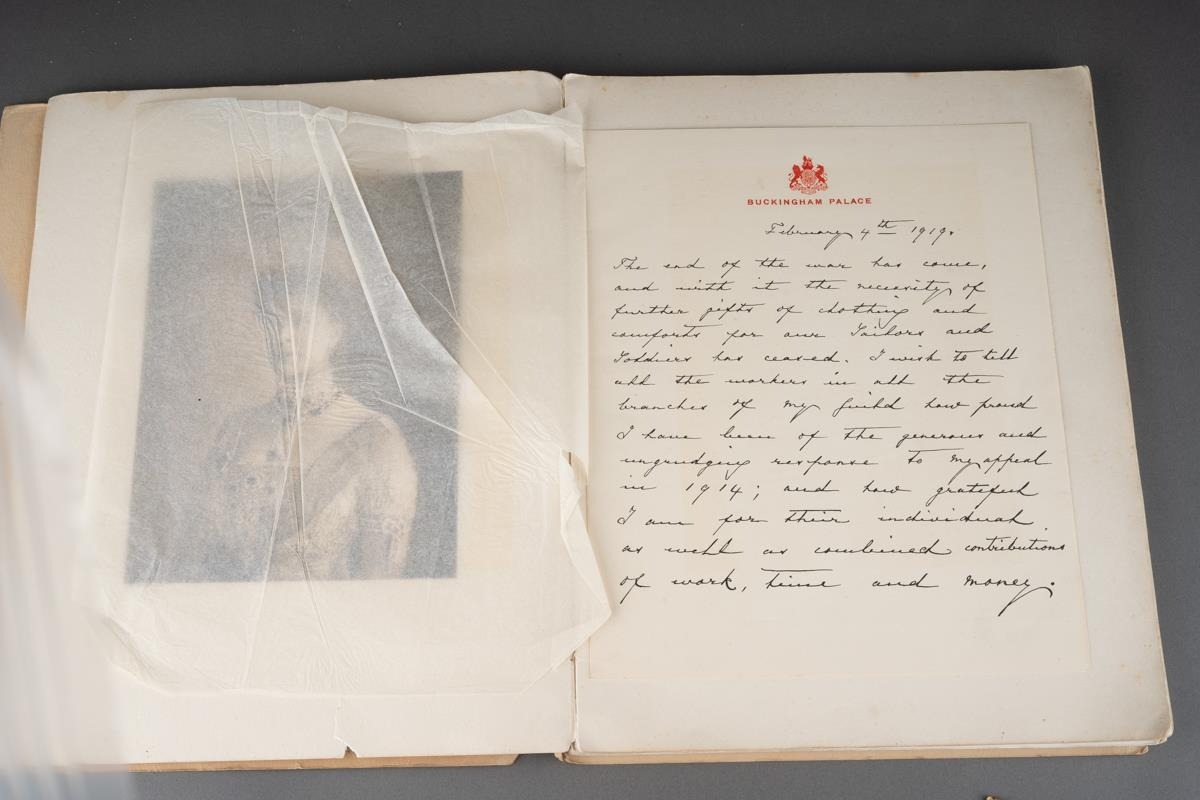 BUCKINGHAM PALACE
February 4th 1919.
The end of the war has come,
and with it the necessity of
further gifts of clothing and
comforts for our Sailors and
Soldiers has ceased. I wish to tell
all the workers in all the
branches of my Guild how proud
I have been of the generous and
ungrudging response to my appeal
in 1914; and how grateful
I am for their individual
as well as combined contributions
of work, time and money.